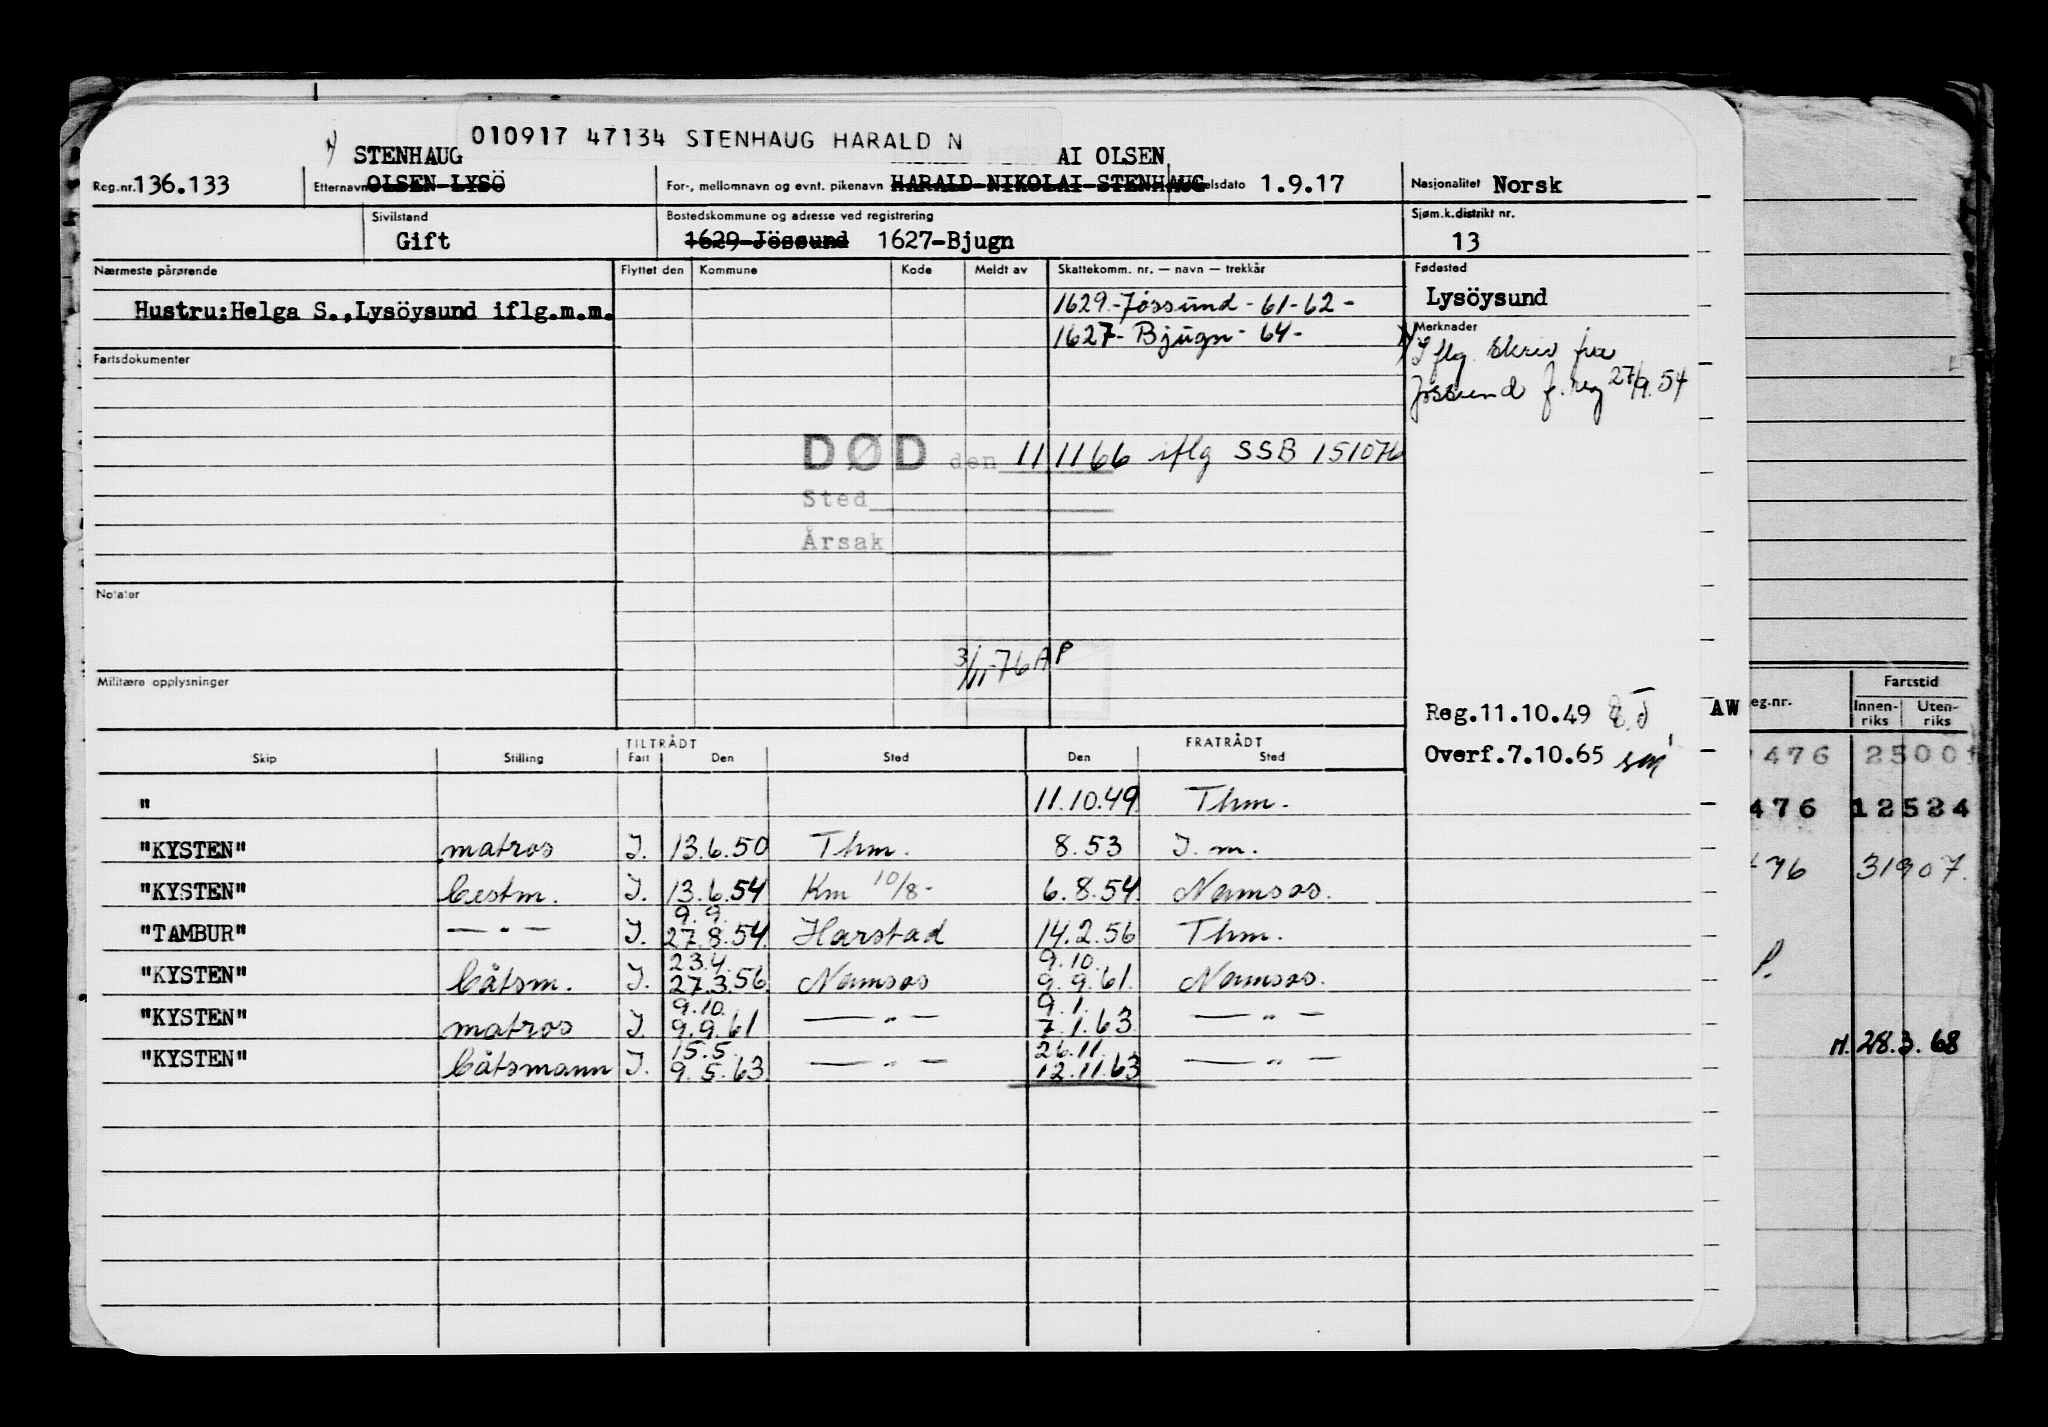 010917 47134 STENHAUG HARALD N
STENHAUG AI OLSEN
Reg.nr. 136.133 Etternavn OLSEN LYSÖ For-, mellomnavn og evnt. pikenavn HARALD NIKOLAI STENHAUG elsdato 1.9.17 Nasjonalitet Norsk
Sivilstand Bostedskommune og adresse ved registrering Sjøm.k.distrikt nr.
Gift 1629-Jössund 1627-Bjugn 13
Nærmeste pårørende Flyttet den Kommune Kode Meldt av Skattekomm. nr. — navn — trekkår Fødested
Hustru:Helga S.,Lysöysund iflg.m.m. 1629-Jössund - 61-62 - Lysöysund
1627- Bjugn - 64 - Merknader
Fartsdokumenter Iflg skriv fra
Jössund f.reg 27/9.54
DØD den 11 11 66 iflg SSB 151076
Sted
Årsak
Notater
3/11-76 AP
Militære opplysninger
Reg.11.10.49 AW
Overf.7.10.65
TILTRÅDT FRATRÅDT
Skip Stilling Fart Den Sted Den Sted
" 11.10.49 Thm.
"KYSTEN" matros I. 13.6.50 Thm. 8.53 I.m.
"KYSTEN" bestm. I. 13.6.54 Km 10/8- 6.8.54 Namsos.
9.9.
"TAMBUR" — " — I. 27.8.54 Harstad 14.2.56 Thm.
23.4. 9.10.
"KYSTEN" båtsm. I. 27.3.56 Namsos 9.9.61. Namsos.
9.10. 9.1.
"KYSTEN" matros I. 9.9.61 — " — 7.1.63 — " —
15.5. 26.11.
"KYSTEN" båtsmann I. 9.5.63 — " — 12.11.63 — " —
eg.nr. Fartstid
Innen- riks Uten- riks
476 2500
476 12524
76 31907.
P.
H. 28.3.68